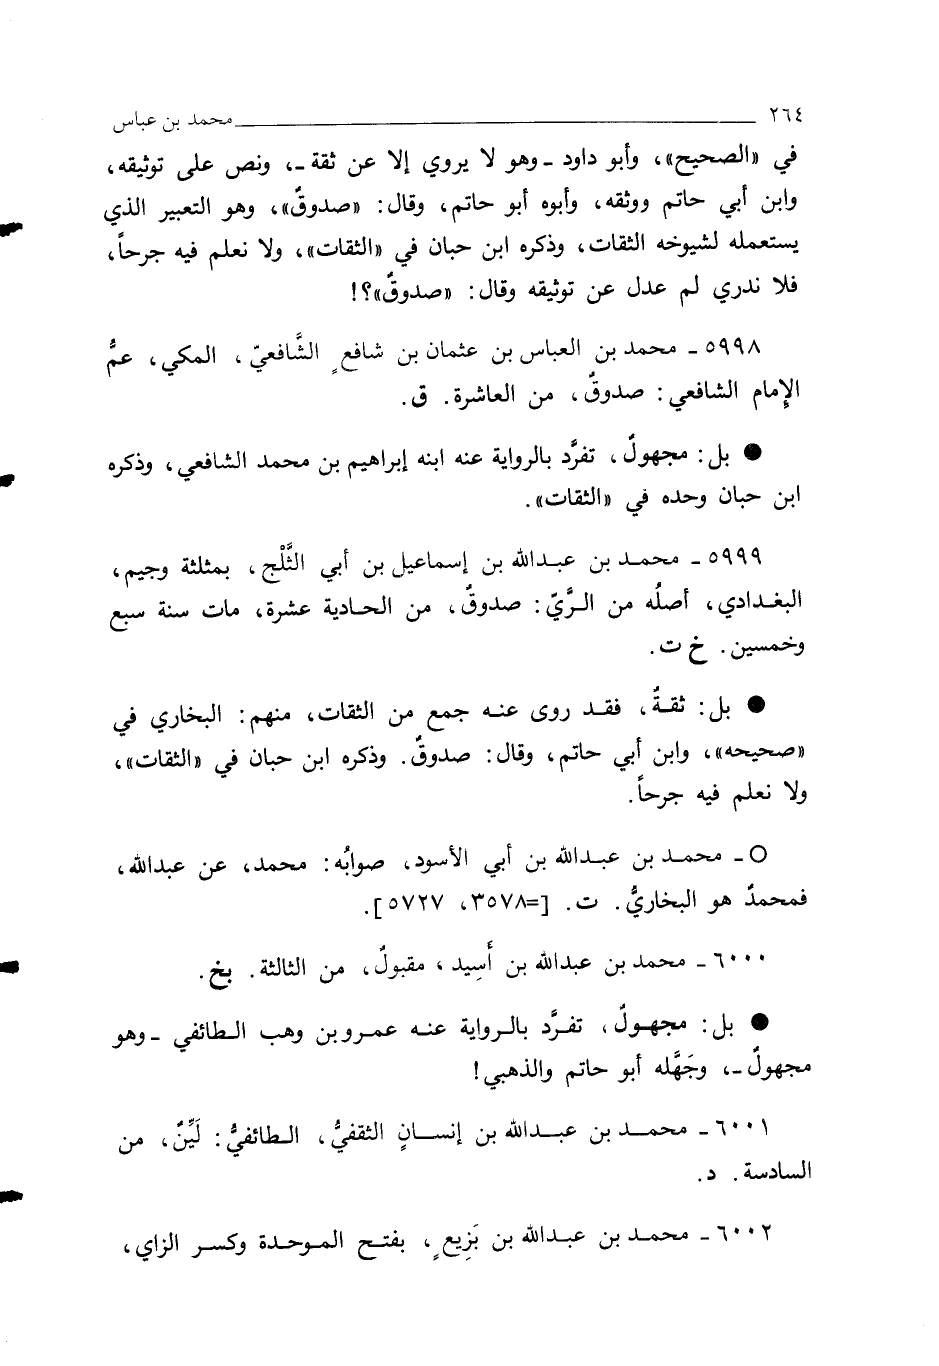 ٢٦٤ محمد بن عباس
في «الصحيح»، وأبو داود ـ وهو لا يروي إلا عن ثقة ـ، ونص على توثيقه،
وابن أبي حاتم ووثقه، وأبوه أبو حاتم، وقال: «صدوقٌ»، وهو التعبير الذي
يستعمله لشيوخه الثقات، وذكره ابن حبان في «الثقات»، ولا نعلم فيه جرحاً،
فلا ندري لم عدل عن توثيقه وقال: «صدوقٌ»؟!
٥٩٩٨ ـ محمد بن العباس بن عثمان بن شافعٍ الشَّافعيّ، المكي، عمُّ
الإمام الشافعي: صدوقٌ، من العاشرة. ق.
● بل: مجهولٌ، تفرَّد بالرواية عنه ابنه إبراهيم بن محمد الشافعي، وذكره
ابن حبان وحده في «الثقات».
٥٩٩٩ ـ محمد بن عبدالله بن إسماعيل بن أبي الثَّلْج، بمثلثة وجيم،
البغدادي، أصلُه من الرَّيّ: صدوقٌ، من الحادية عشرة، مات سنة سبع
وخمسين. خ ت.
● بل: ثقةٌ، فقد روى عنه جمع من الثقات، منهم: البخاري في
«صحيحه»، وابن أبي حاتم، وقال: صدوقٌ. وذكره ابن حبان في «الثقات»،
ولا نعلم فيه جرحاً.
○ ـ محمد بن عبدالله بن أبي الأسود، صوابُه: محمد، عن عبدالله،
فمحمدٌ هو البخاريُّ. ت. [=٣٥٧٨، ٥٧٢٧].
٦٠٠٠ ـ محمد بن عبدالله بن أَسِيد، مقبولٌ، من الثالثة. بخ.
● بل: مجهولٌ، تفرَّد بالرواية عنه عمرو بن وهب الطائفي ـ وهو
مجهولٌ ـ، وجَهَّله أبو حاتم والذهبي!
٦٠٠١ ـ محمد بن عبدالله بن إنسانٍ الثقفيُّ، الطائفيُّ: لَيِّنٌ، من
السادسة. د.
٦٠٠٢ ـ محمد بن عبدالله بن بَزِيعٍ، بفتح الموحدة وكسر الزاي،